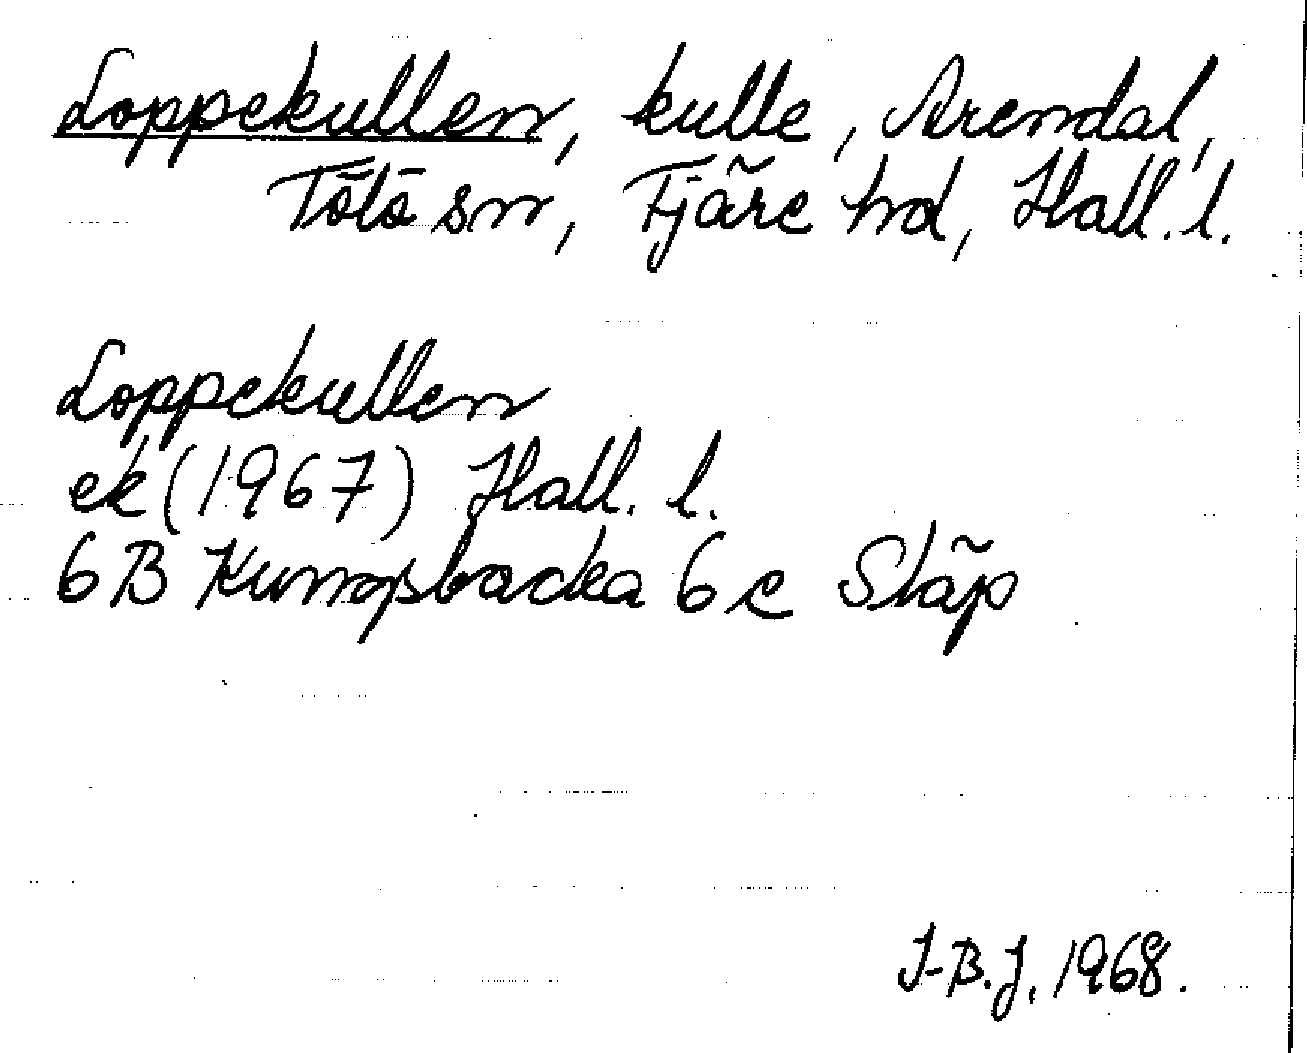 Loppekullen, kulle, Arendal,
Tölö sn, Fjäre hd, Hall. l.
Loppekullen
ek (1967) Hall. l.
6B Kungsbacka 6 c Släp
I-B.J. 1968.